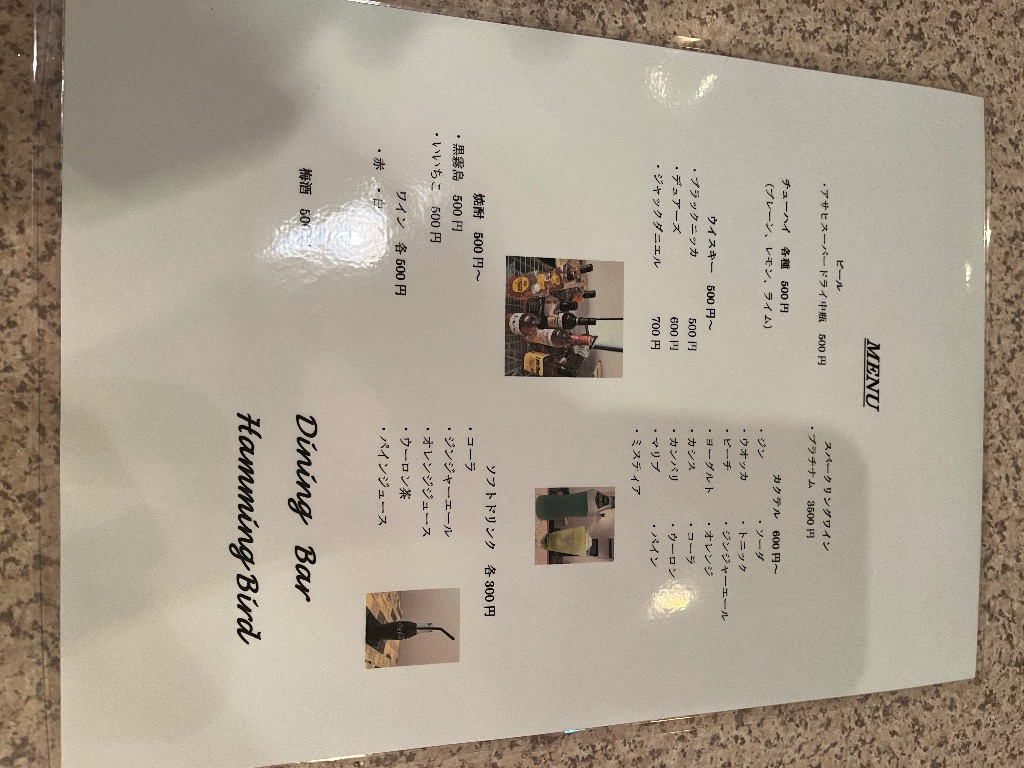 MENU
ビール
・アサヒスーパードライ中瓶 500円
チューハイ 各種 500円
(プレーン、レモン、ライム)
ウイスキー 500円～
・ブラックニッカ 500円
・デュアーズ 600円
・ジャックダニエル 700円
焼酎 500円～
・黒霧島 500円
・いいちこ 500円
ワイン 各500円
・赤 ・白
梅酒
スパークリングワイン
・プラチナム 3500円
カクテル 600円～
・ジン ・ソーダ
・ウオッカ ・トニック
・ピーチ ・ジンジャーエール
・ヨーグルト ・オレンジ
・カシス ・コーラ
・カンパリ ・ウーロン
・マリブ ・パイン
・ミスティア
ソフトドリンク 各300円
・コーラ
・ジンジャーエール
・オレンジジュース
・ウーロン茶
・パインジュース
Dining Bar
Hamming Bird